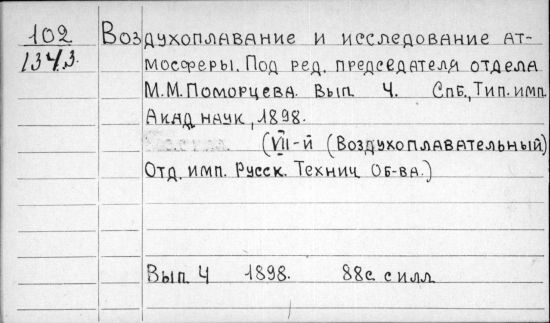 102 Воздухоплавание и исследование ат-
134,3. мосферы. Под ред. председателя отдела
М.М. Поморцева. Вып. 4. Спб., Тип. имп.
Акад. наук, 1898.
(VII-й (Воздухоплавательный)
Отд. имп. Русск. Технич. Об-ва.)
Вып. 4 1898. 88с. с илл.